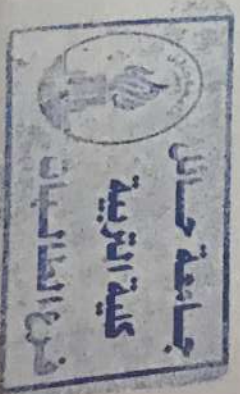 جامعة حائل
كلية التربية
فرع الطالبات